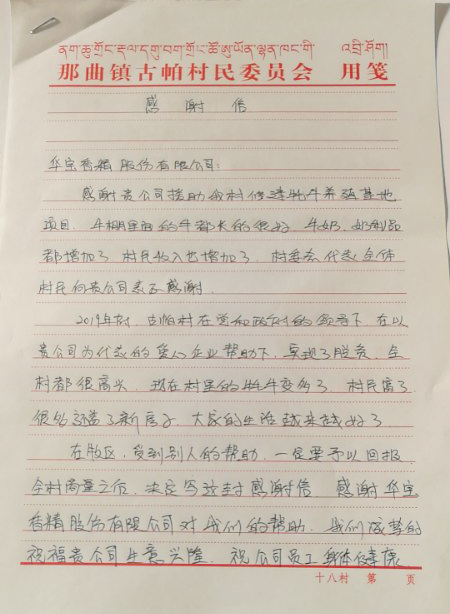 那曲镇古帕村民委员会 用笺
感谢信
华宝香精股份有限公司:
感谢贵公司援助我村修建牦牛养殖基地
项目。牛棚里面的牛都长的很好,牛奶、奶制品
都增加了,村民收入也增加了,村委会代表全体
村民向贵公司表示感谢。
2019年时,古帕村在党和政府的领导下,在以
贵公司为代表的爱心企业帮助下,实现了脱贫,全
村都很高兴。现在村里的牦牛变多了,村民富了
很多还盖了新房子,大家的生活越来越好了。
在牧区,受到别人的帮助,一定要予以回报
全村商量之后,决定写这封感谢信,感谢华宝
香精股份有限公司对我们的帮助,我们诚挚的
祝福贵公司生意兴隆,祝公司员工身体健康
十八村 第 页